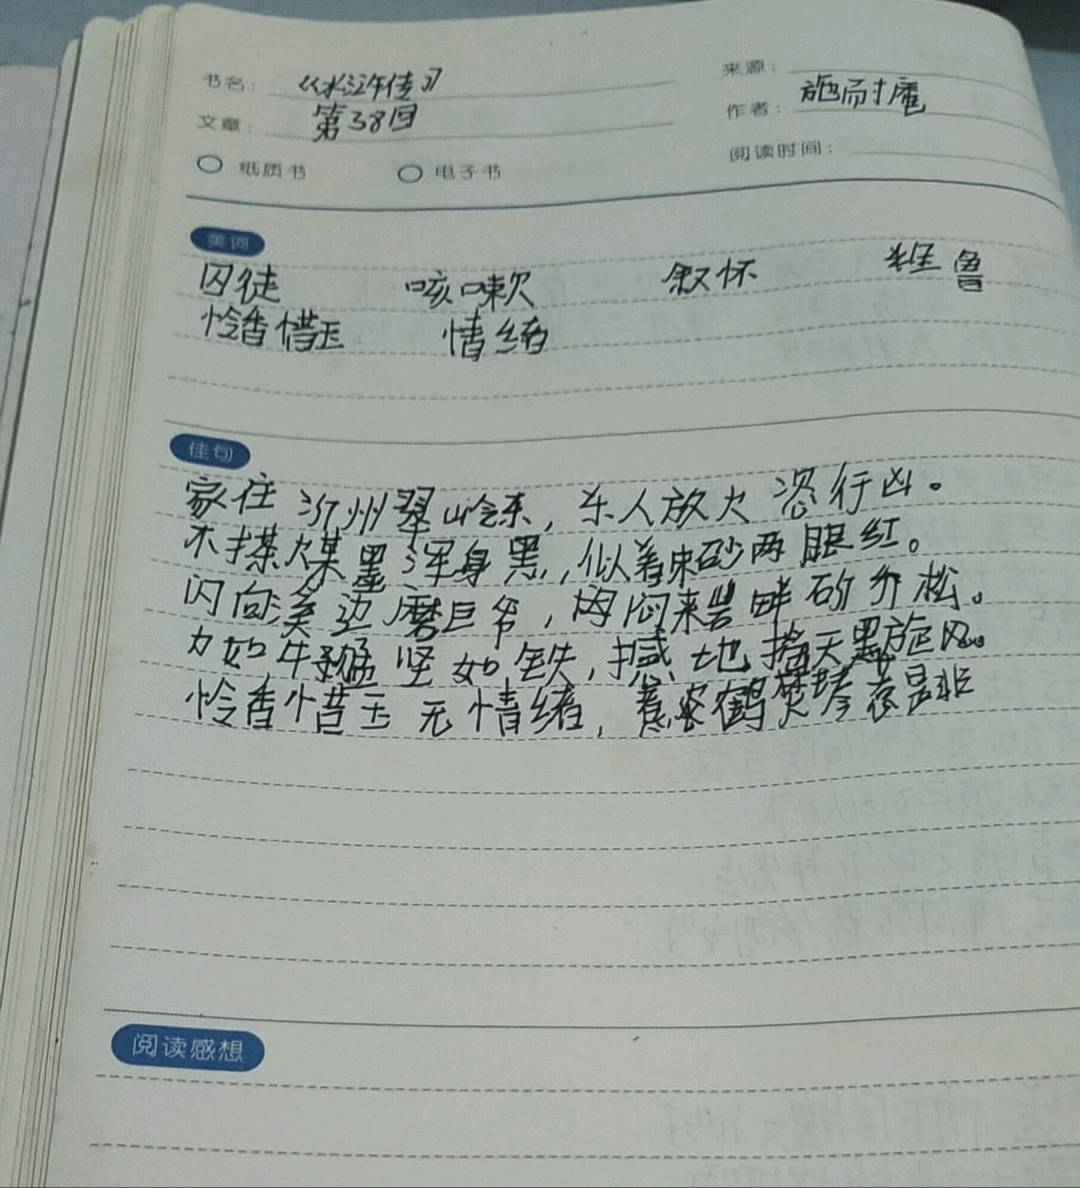 书名： 《水浒传》
来源：
文章： 第38回
作者： 施耐庵
纸质书 电子书
阅读时间：
美词
囚徒 咳嗽 叙怀 粗鲁
怜香惜玉 情绪
佳句
家住沂州翠岭东，杀人放火恣行凶。
不搽煤墨浑身黑，似着朱砂两眼红。
闲向溪边磨巨斧，闷来岩畔斫乔松。
力如牛猛坚如铁，撼地摇天黑旋风。
怜香惜玉无情绪，煮鹤焚琴惹是非
阅读感想